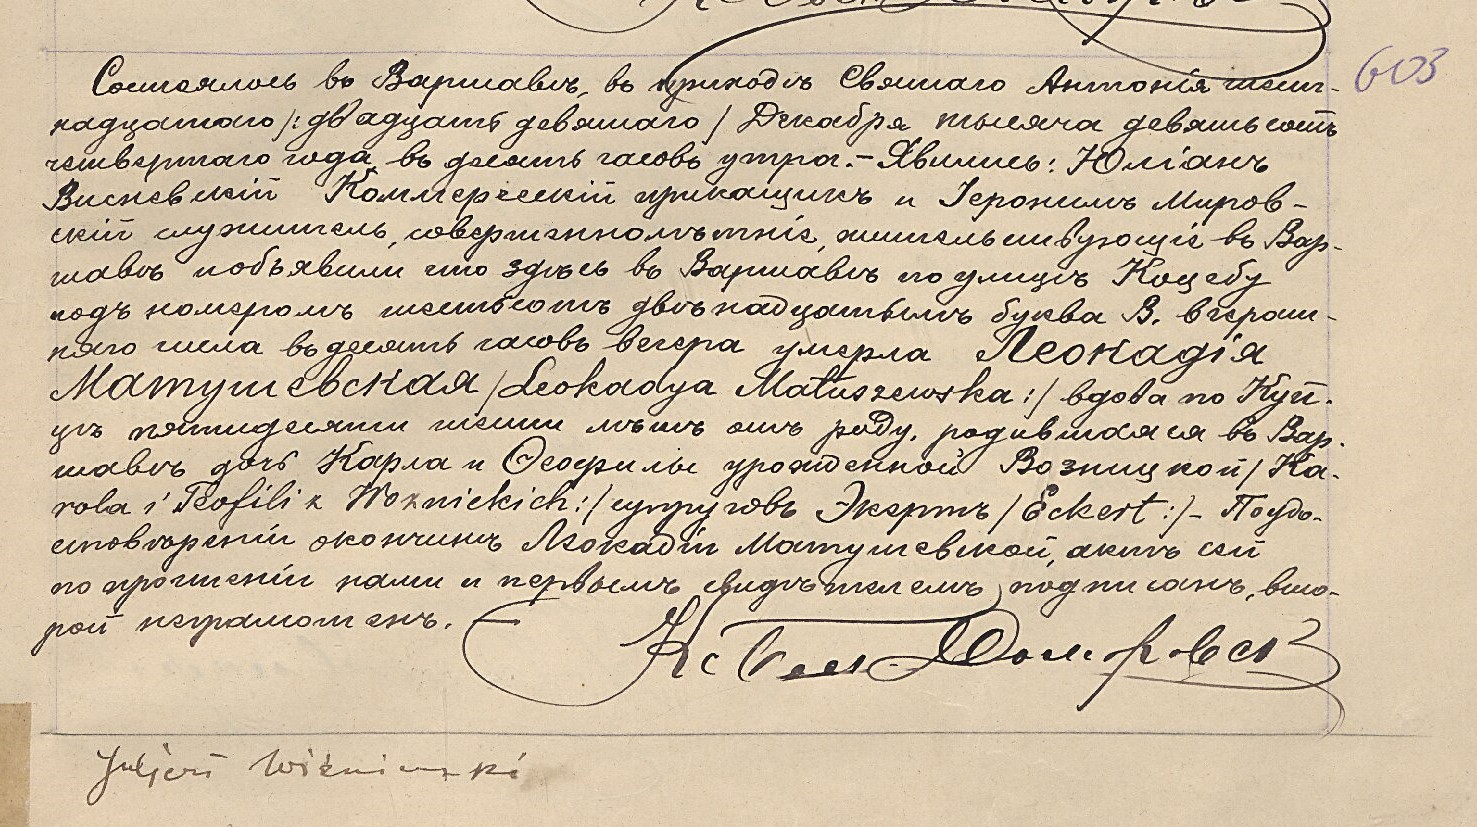 603
Состоялось въ Варшавѣ, въ приходѣ Святаго Антонія шест-
надцатаго /: двадцать девятаго / Декабря тысяча девятьсотъ
четвертаго года, въ десять часовъ утра. – Явились: Юліанъ
Висневскій Коммерческій прикащикъ и Іеронимъ Миров-
скій служитель, совершеннолѣтніе, жительствующіе въ Вар-
шавѣ и объявили что здѣсь въ Варшавѣ по улицѣ Коцебу
подъ номеромъ шестьсотъ двѣнадцатымъ буква В. вчераш-
няго числа въ десять часовъ вечера умерла Леокадія
Матушевская /Leokadya Matuszewska :/ вдова по Куп-
цѣ пятидесяти шести лѣтъ отъ роду, родившаяся въ Вар-
шавѣ дочь Карла и Ѳеофилы урожденной Возницкой / Ka-
rola i Teofili z Woznickich :/ супруговъ Экертъ / Eckert :/ – По удо-
стовѣреніи окончинѣ Леокадіи Матушевской, актъ сей
по прочтеніи нами и первымъ свидѣтелемъ подписанъ, вто-
рой неграмотенъ. –
Juljan Wiśniewski